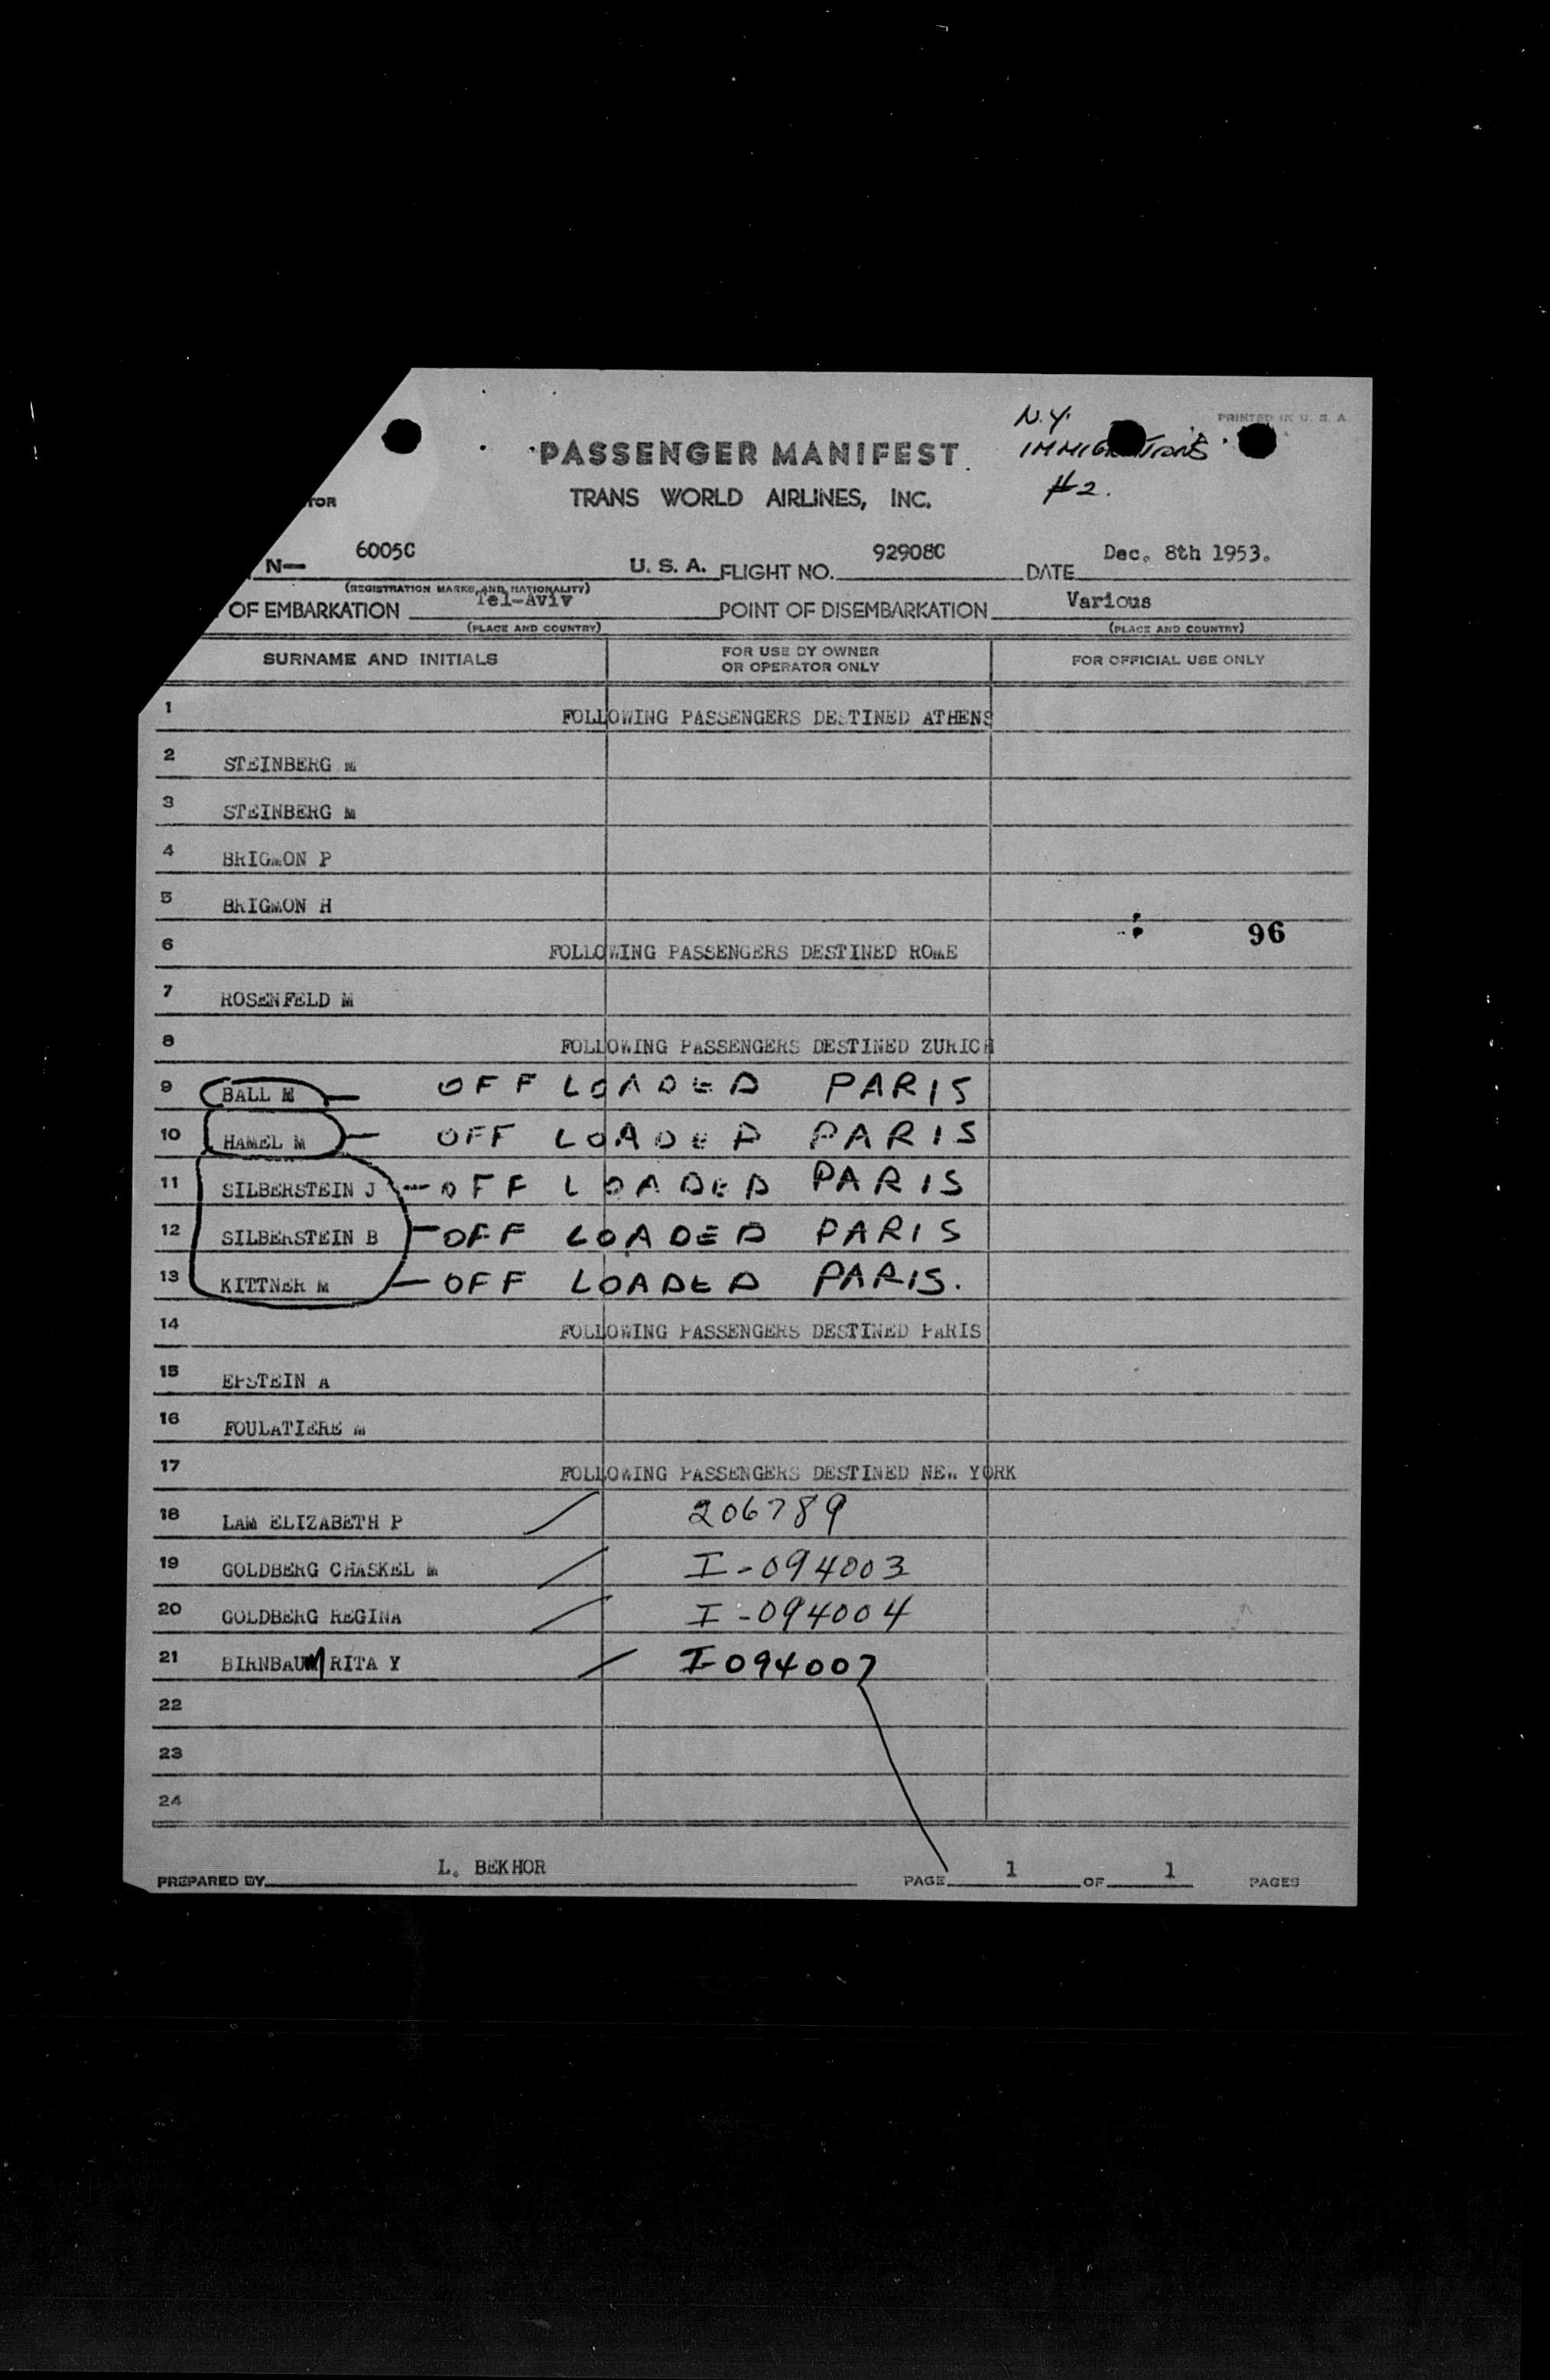 N.Y.
PRINTED IN U. S. A.
PASSENGER MANIFEST
IMMIGRATIONS
TRANS WORLD AIRLINES, INC.
#2.
TOR
N— 6005C U. S. A. FLIGHT NO. 92908C DATE Dec. 8th 1953.
(REGISTRATION MARKS AND NATIONALITY)
OF EMBARKATION Tel-Aviv POINT OF DISEMBARKATION Various
(PLACE AND COUNTRY) (PLACE AND COUNTRY)
SURNAME AND INITIALS FOR USE BY OWNER OR OPERATOR ONLY FOR OFFICIAL USE ONLY
1 FOLLOWING PASSENGERS DESTINED ATHENS
2 STEINBERG M
3 STEINBERG M
4 BRIGMON P
5 BRIGMON H
96
6 FOLLOWING PASSENGERS DESTINED ROME
7 ROSENFELD M
8 FOLLOWING PASSENGERS DESTINED ZURICH
9 BALL M — OFF LOADED PARIS
10 HAMEL M — OFF LOADED PARIS
11 SILBERSTEIN J — OFF LOADED PARIS
12 SILBERSTEIN B — OFF LOADED PARIS
13 KITTNER M — OFF LOADED PARIS.
14 FOLLOWING PASSENGERS DESTINED PARIS
15 EPSTEIN A
16 FOULATIERE M
17 FOLLOWING PASSENGERS DESTINED NEW YORK
18 LAM ELIZABETH P 206789
19 GOLDBERG CHASKEL M I-094003
20 GOLDBERG REGINA I-094004
21 BIRNBAUM RITA Y I-094007
22
23
24
PREPARED BY L. BEKHOR PAGE 1 OF 1 PAGES